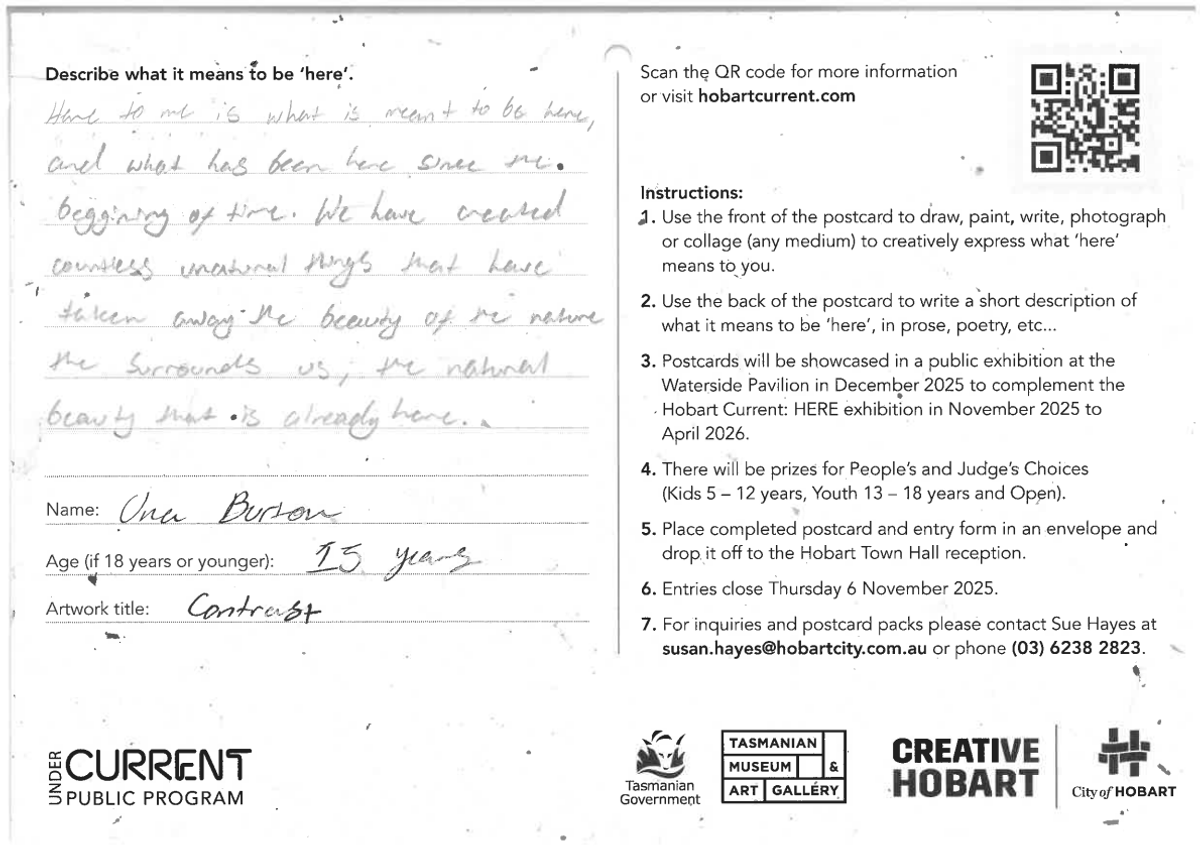 Describe what it means to be ‘here’.
Here to me is what is meant to be here,
and what has been here since the
beggining of time. We have created
countless unatural things that have
taken away the beauty of the nature
the surrounds us, the natural
beauty that is already here.
Name: Una Burton
Age (if 18 years or younger): 15 years
Artwork title: Contrast
UNDER CURRENT
PUBLIC PROGRAM
Scan the QR code for more information
or visit hobartcurrent.com
Instructions:
1. Use the front of the postcard to draw, paint, write, photograph
or collage (any medium) to creatively express what ‘here’
means to you.
2. Use the back of the postcard to write a short description of
what it means to be ‘here’, in prose, poetry, etc...
3. Postcards will be showcased in a public exhibition at the
Waterside Pavilion in December 2025 to complement the
Hobart Current: HERE exhibition in November 2025 to
April 2026.
4. There will be prizes for People’s and Judge’s Choices
(Kids 5 – 12 years, Youth 13 – 18 years and Open).
5. Place completed postcard and entry form in an envelope and
drop it off to the Hobart Town Hall reception.
6. Entries close Thursday 6 November 2025.
7. For inquiries and postcard packs please contact Sue Hayes at
susan.hayes@hobartcity.com.au or phone (03) 6238 2823.
Tasmanian
Government
TASMANIAN
MUSEUM &
ART GALLERY
CREATIVE
HOBART
City of HOBART